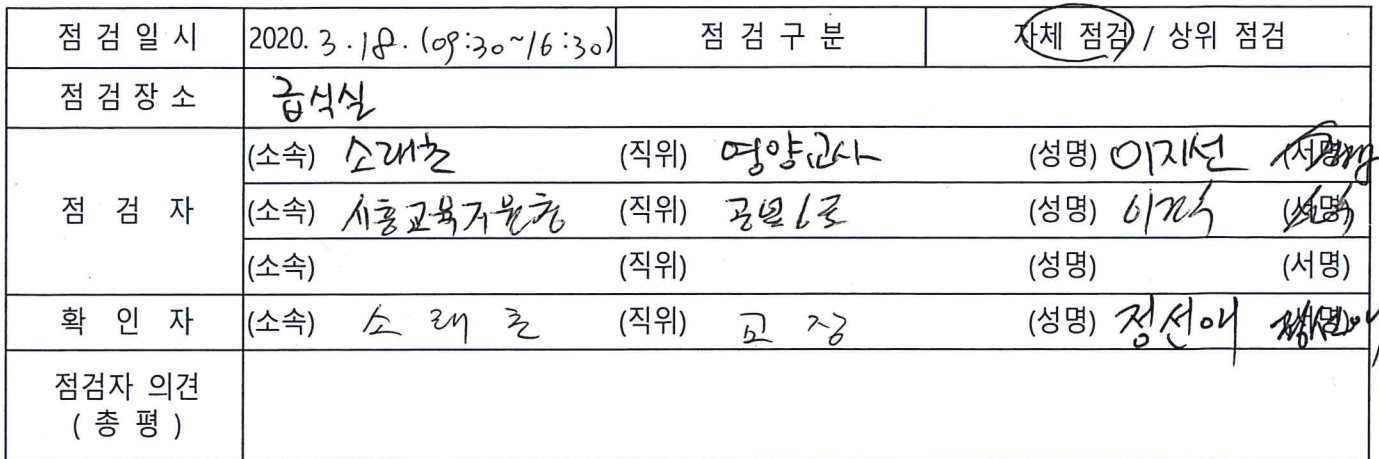 점 검 일 시 2020. 3. 18. (09:30~16:30) 점 검 구 분 자체 점검 / 상위 점검
점 검 장 소 급식실
(소속) 소래초 (직위) 영양교사 (성명) 이지선 (서명)
점 검 자 (소속) 시흥교육지원청 (직위) (성명) (서명)
(소속) (직위) (성명) (서명)
확 인 자 (소속) 소래초 (직위) 교장 (성명) 정선애 (서명)
점검자 의견
( 총 평 )